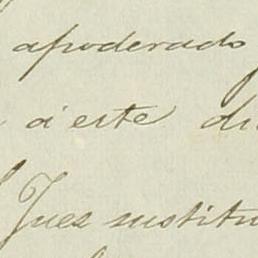 apoderado
á este di
Juez sustitu